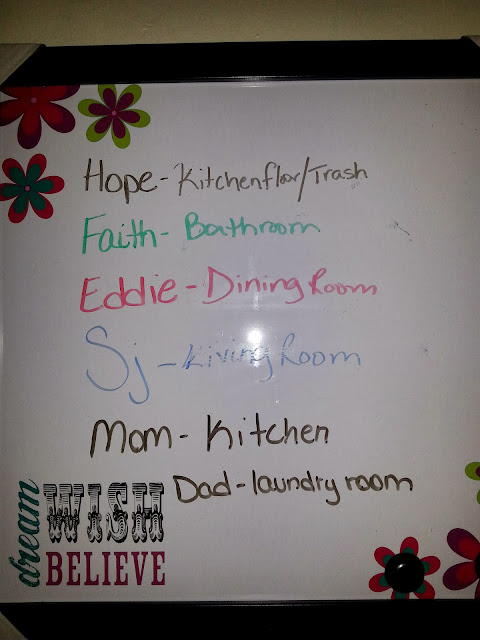 Hope - Kitchen floor/Trash
Faith - Bathroom
Eddie - Dining Room
Sj - Living Room
Mom - Kitchen
Dad - laundry room
dream
WISH
BELIEVE